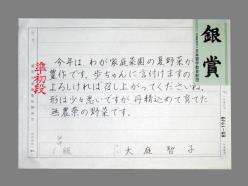 銀賞
準初段
今年は、わが家庭菜園の夏野菜が
豊作です。歩ちゃんに言付けますの
よろしければ召し上がってくださいね。
形は少々悪いですが、丹精込めて育てた
無農薬の野菜です。
級
大庭智子